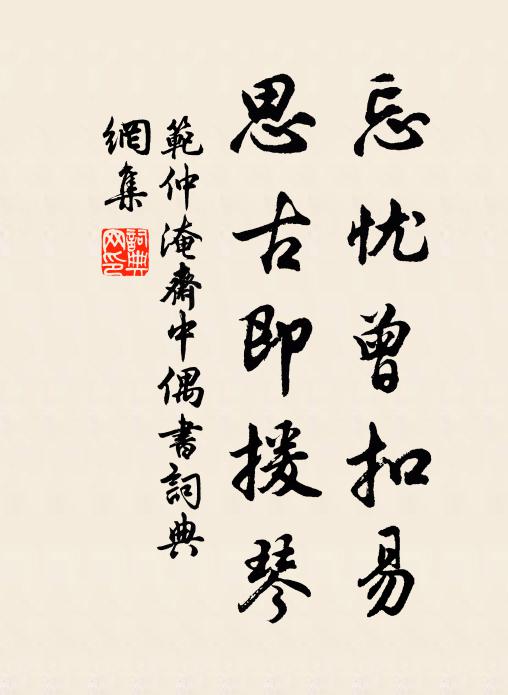 忘忧曾扣易
思古即援琴
範仲淹齋中偶書詞典
網集
詞典网印